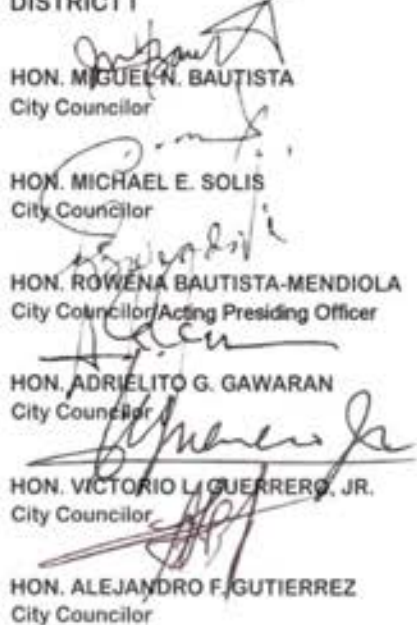 DISTRICT I
HON. MIGUEL N. BAUTISTA
City Councilor
HON. MICHAEL E. SOLIS
City Councilor
HON. ROWENA BAUTISTA-MENDIOLA
City Councilor/Acting Presiding Officer
HON. ADRIELITO G. GAWARAN
City Councilor
HON. VICTORIO L. GUERRERO, JR.
City Councilor
HON. ALEJANDRO F. GUTIERREZ
City Councilor